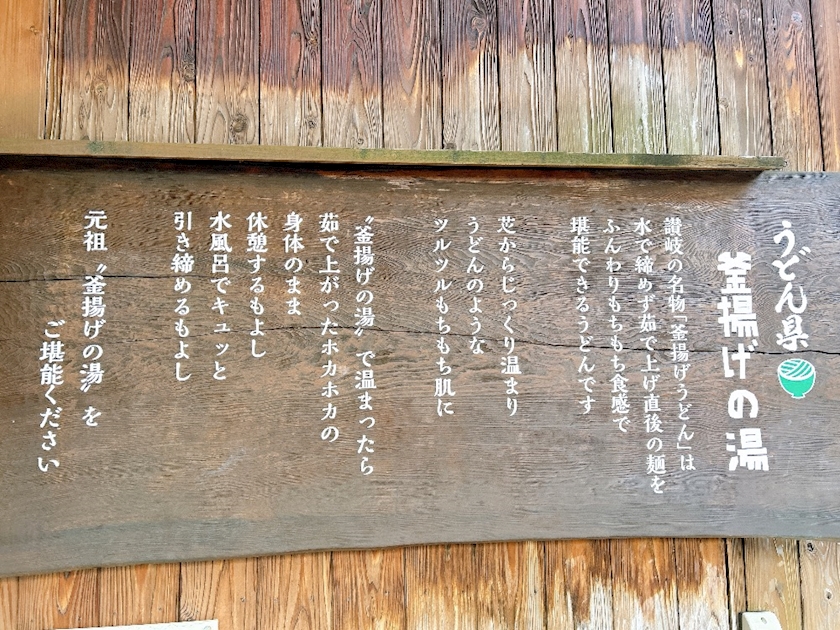 うどん県
釜揚げの湯
讃岐の名物「釜揚げうどん」は
水で締めず茹で上げ直後の麺を
ふんわりもちもち食感で
堪能できるうどんです
芯からじっくり温まり
うどんのような
ツルツルもちもち肌に
〝釜揚げの湯〟で温まったら
茹で上がったホカホカの
身体のまま
休憩するもよし
水風呂でキュッと
引き締めるもよし
元祖〝釜揚げの湯〟を
ご堪能ください